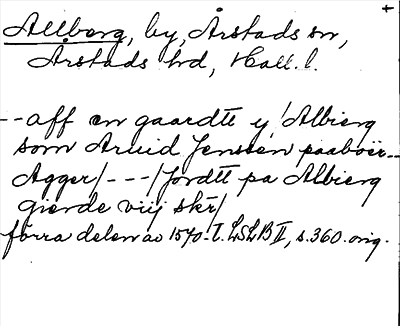 Allberg, by, Årstads sn,
Årstads hd, Hall. l.
--aff en gaardtt y/ Albierg
som Aruid Jenssen paaboër--
Agger/---/Jordtt pa Albierg
gierde viij skr/
förra delen av 1570-t. LSLB II, s. 360. orig.